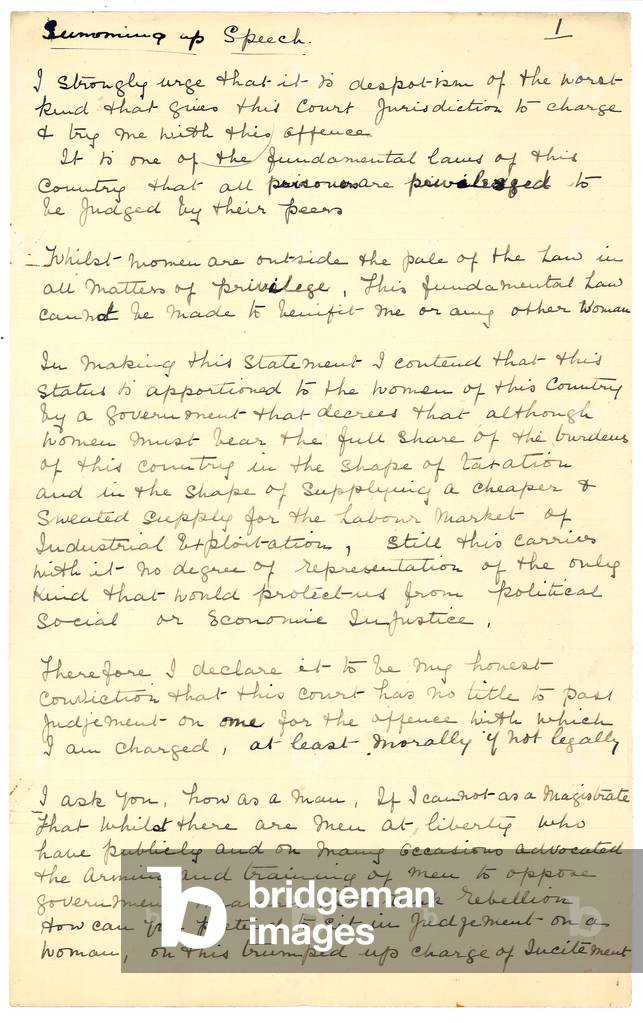 Summing up Speech. 1
I strongly urge that it is despotism of the worst
kind that gives this Court Jurisdiction to charge
& try me with this offence
It is one of the fundamental laws of this
Country that all prisoners are privileged to
be Judged by their peers
Whilst women are outside the pale of the Law in
all matters of privilege, This fundamental Law
cannot be made to benifit me or any other Woman
In making this Statement I contend that this
Status is apportioned to the women of this Country
by a government that decrees that although
women must bear the full share of the burdens
of this country in the shape of taxation
and in the shape of supplying a cheaper &
Sweated supply for the Labour market of
Industrial Exploitation, still this carries
with it no degree of representation of the only
kind that would protect us from political
Social or Economic Injustice,
Therefore I declare it to be my honest
conviction that this court has no title to pass
Judjement on me for the offence with which
I am charged, at least Morally if not legally
I ask you, how as a man, If I cannot as a Magistrate
That whilst there are men at liberty who
have publicly and on many occasions advocated
the arming and training of men to oppose
government rebellion
How can you to sit in Judjement on a
woman, on this trumped up charge of Incitement
bridgeman
images
b